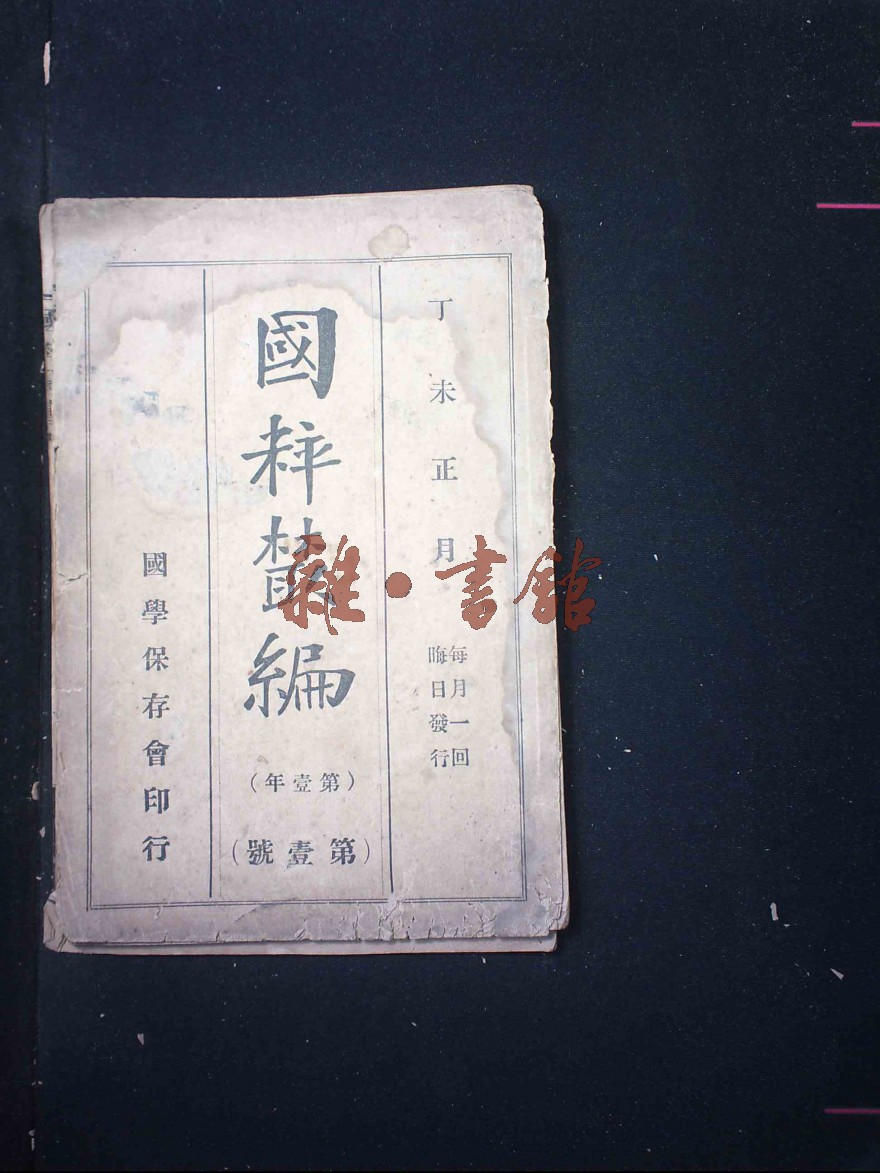 丁未正月
每月一回
晦日發行
國粹叢編
（第壹年）
（第壹號）
國學保存會印行
雜·書館